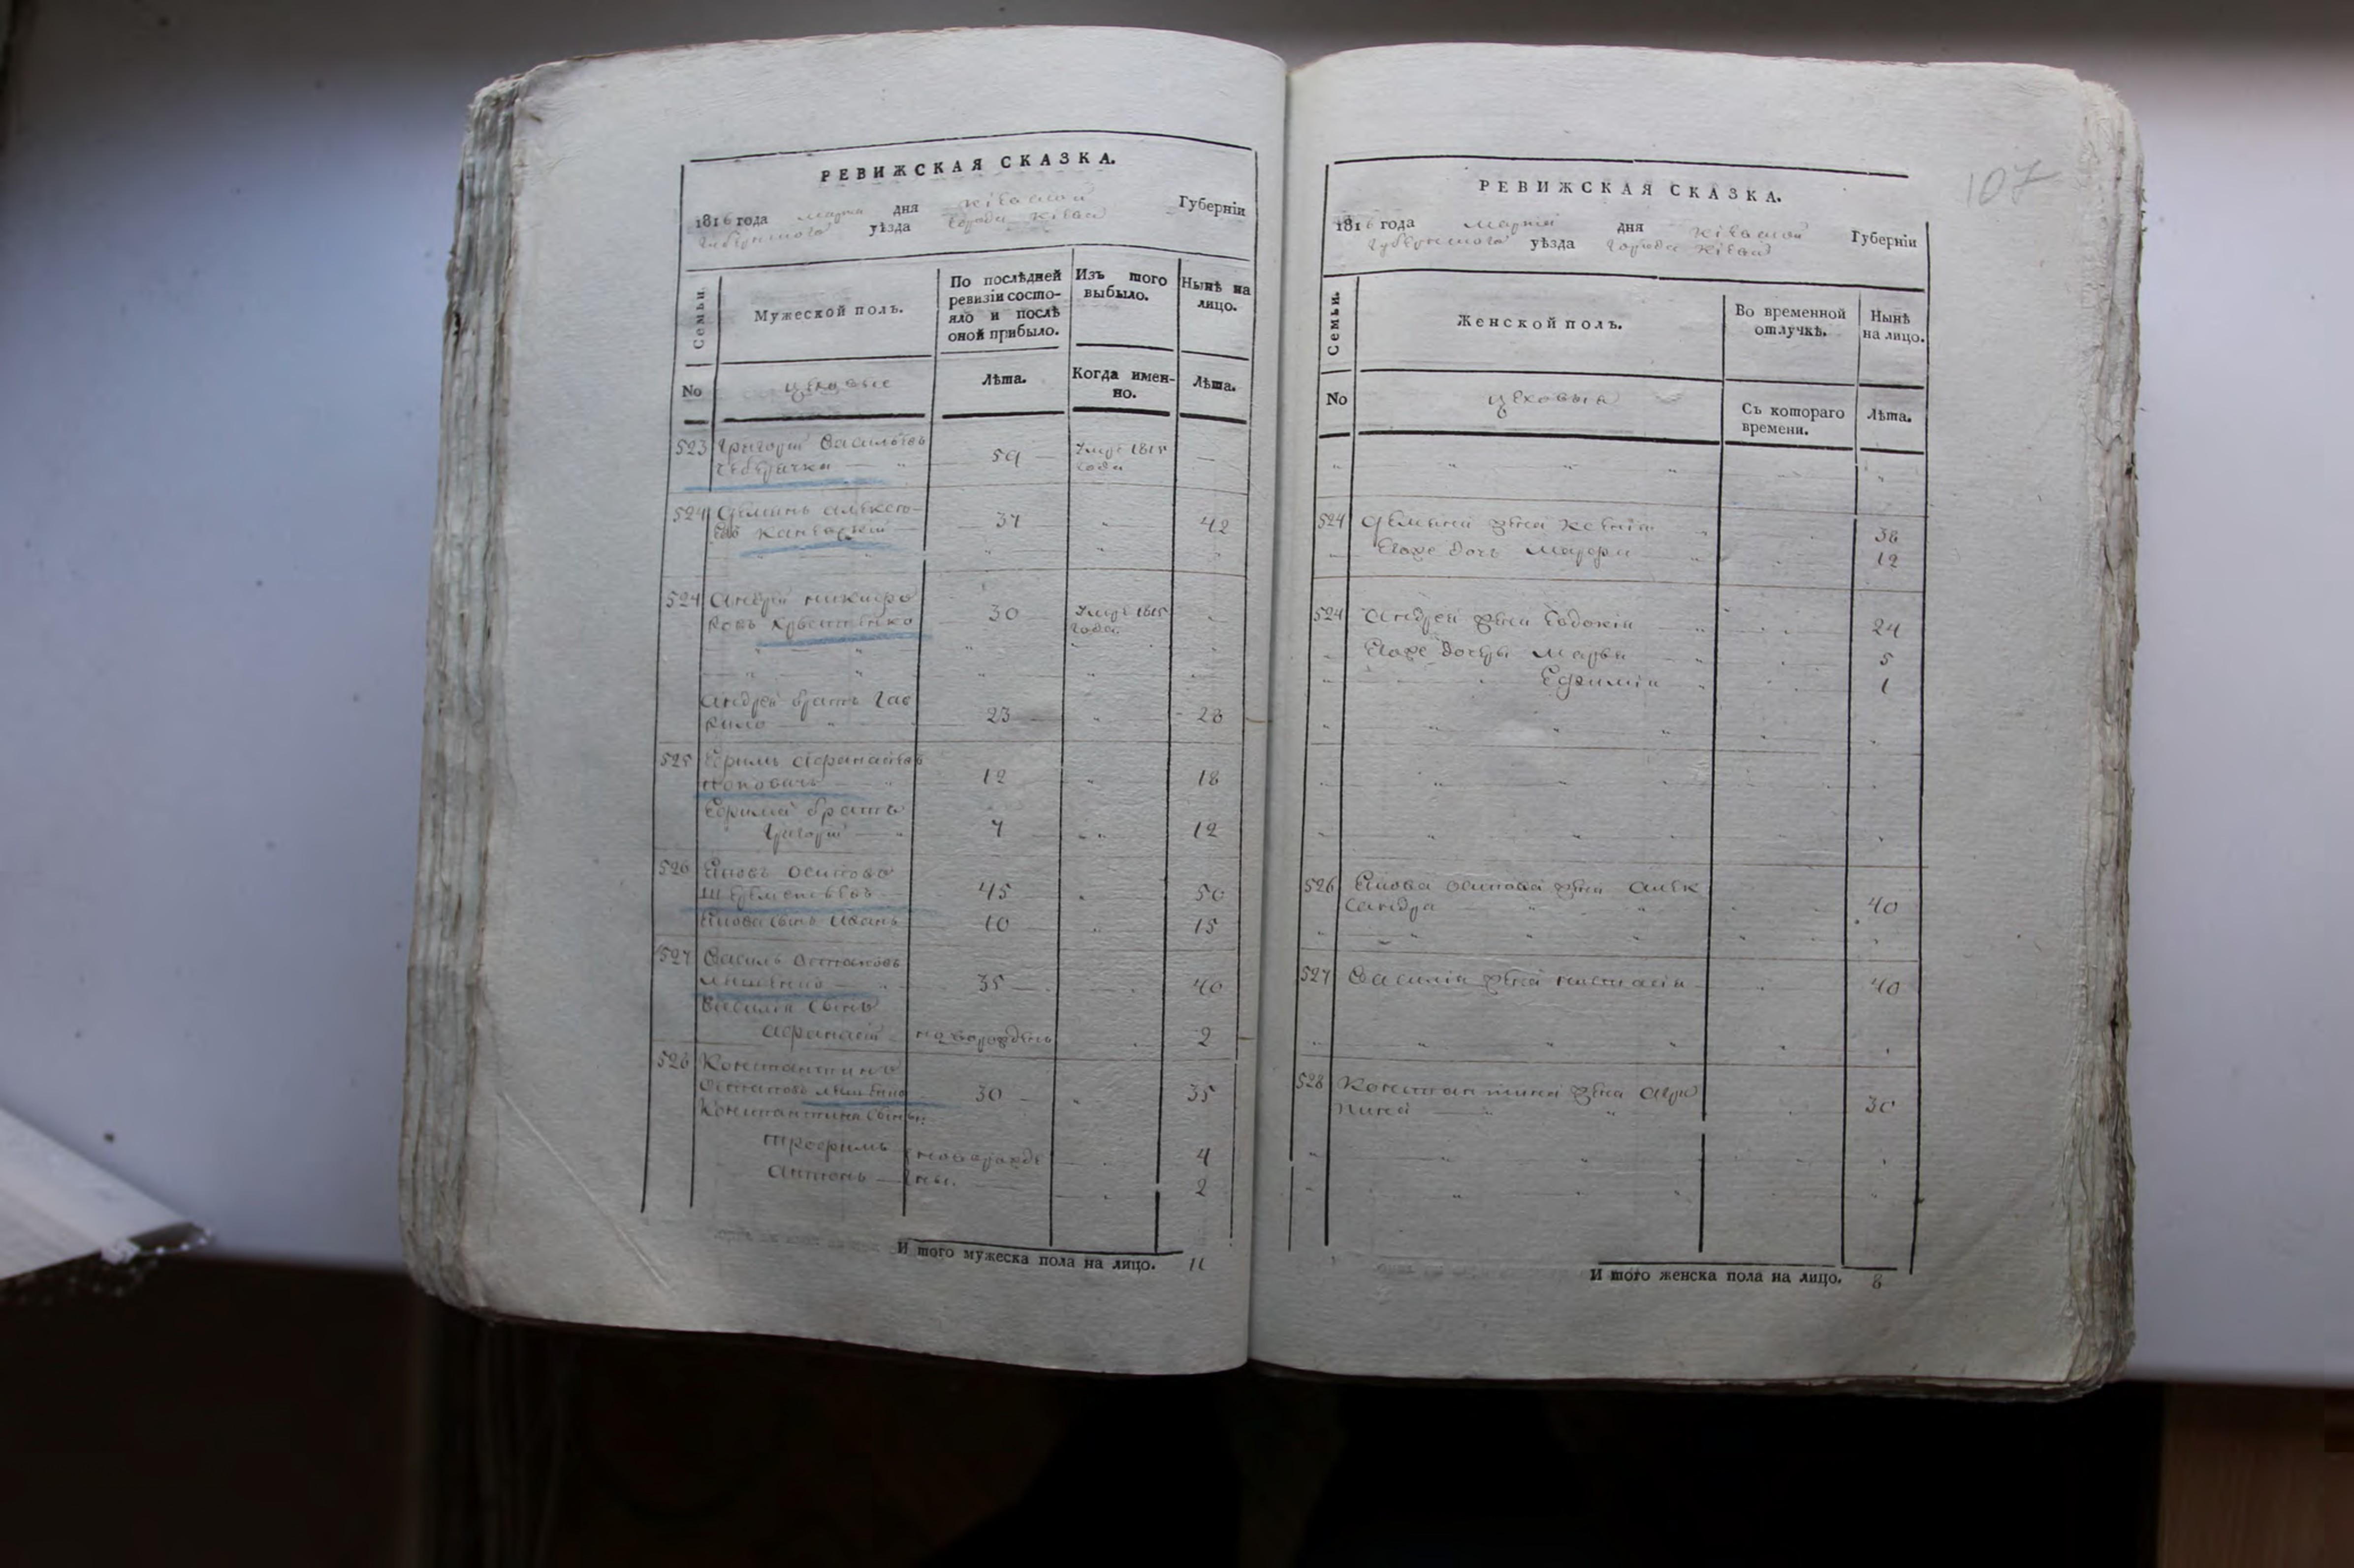 РЕВИЖСКАЯ СКАЗКА.
1816 года марта дня Кіевской Губерніи
Губернского уѣзда города Кіева
Семьи.
Мужеской полъ.
По послѣдней ревизіи состояло и послѣ оной прибыло.
Изъ того выбыло.
Нынѣ на лицо.
No
цеховые
Лѣта.
Когда именно.
Лѣта.
523 Григорій Васильевъ
59 Умре 1815
года
524
37 42
524 Андрей Никифо
ровъ
30 Умре 1815
года
Андрей братъ Гав
рило 23 28
525 Ефимъ Афанасіевъ
12 18
Ефима братъ
Григорій 7 12
526 Яковъ Осиповъ
45 50
Якова сынъ Иванъ 10 15
527 Василь Остаповъ
35 40
Василія сынъ
Афанасій новорожденъ 2
528 Константинъ
Остаповъ 30 35
Константина сыны:
Трофимъ новорожде 4
Антонъ ны. 2
И того мужеска пола на лицо. 11
107
РЕВИЖСКАЯ СКАЗКА.
1816 года дня Кіевской Губерніи
Губернского уѣзда города Кіева
Семьи.
Женской полъ.
Во временной отлучкѣ.
Нынѣ на лицо.
No
цеховыя
Съ котораго времени.
Лѣта.
524 жена 38
Егоже дочь 12
524 Андрея жена Евдокія 24
Егоже дочери Марья 5
Ефимія 1
526 Якова Осипова жена Алек
сандра 40
527 Василія жена Настасія 40
528 Константина жена Агри
пина 30
И того женска пола на лицо. 8